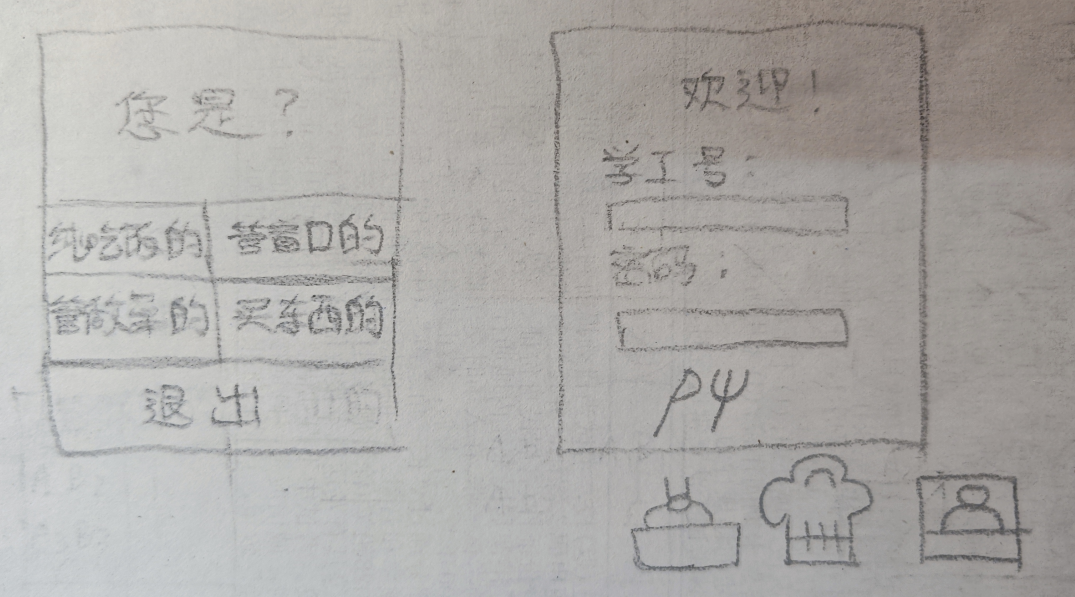 您是？
纯吃饭的 管窗口的
管做菜的 买东西的
退出
欢迎！
学工号：
密码：
ρψ